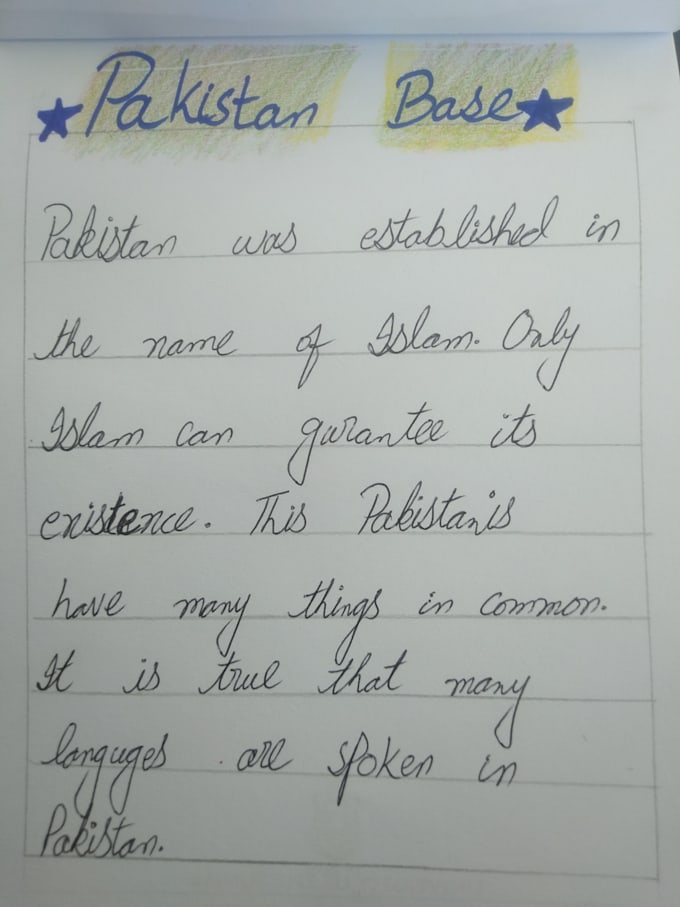 Pakistan Base
Pakistan was established in
the name of Islam. Only
Islam can gurantee its
existence. This Pakistanis
have many things in common.
It is true that many
languges are spoken in
Pakistan.